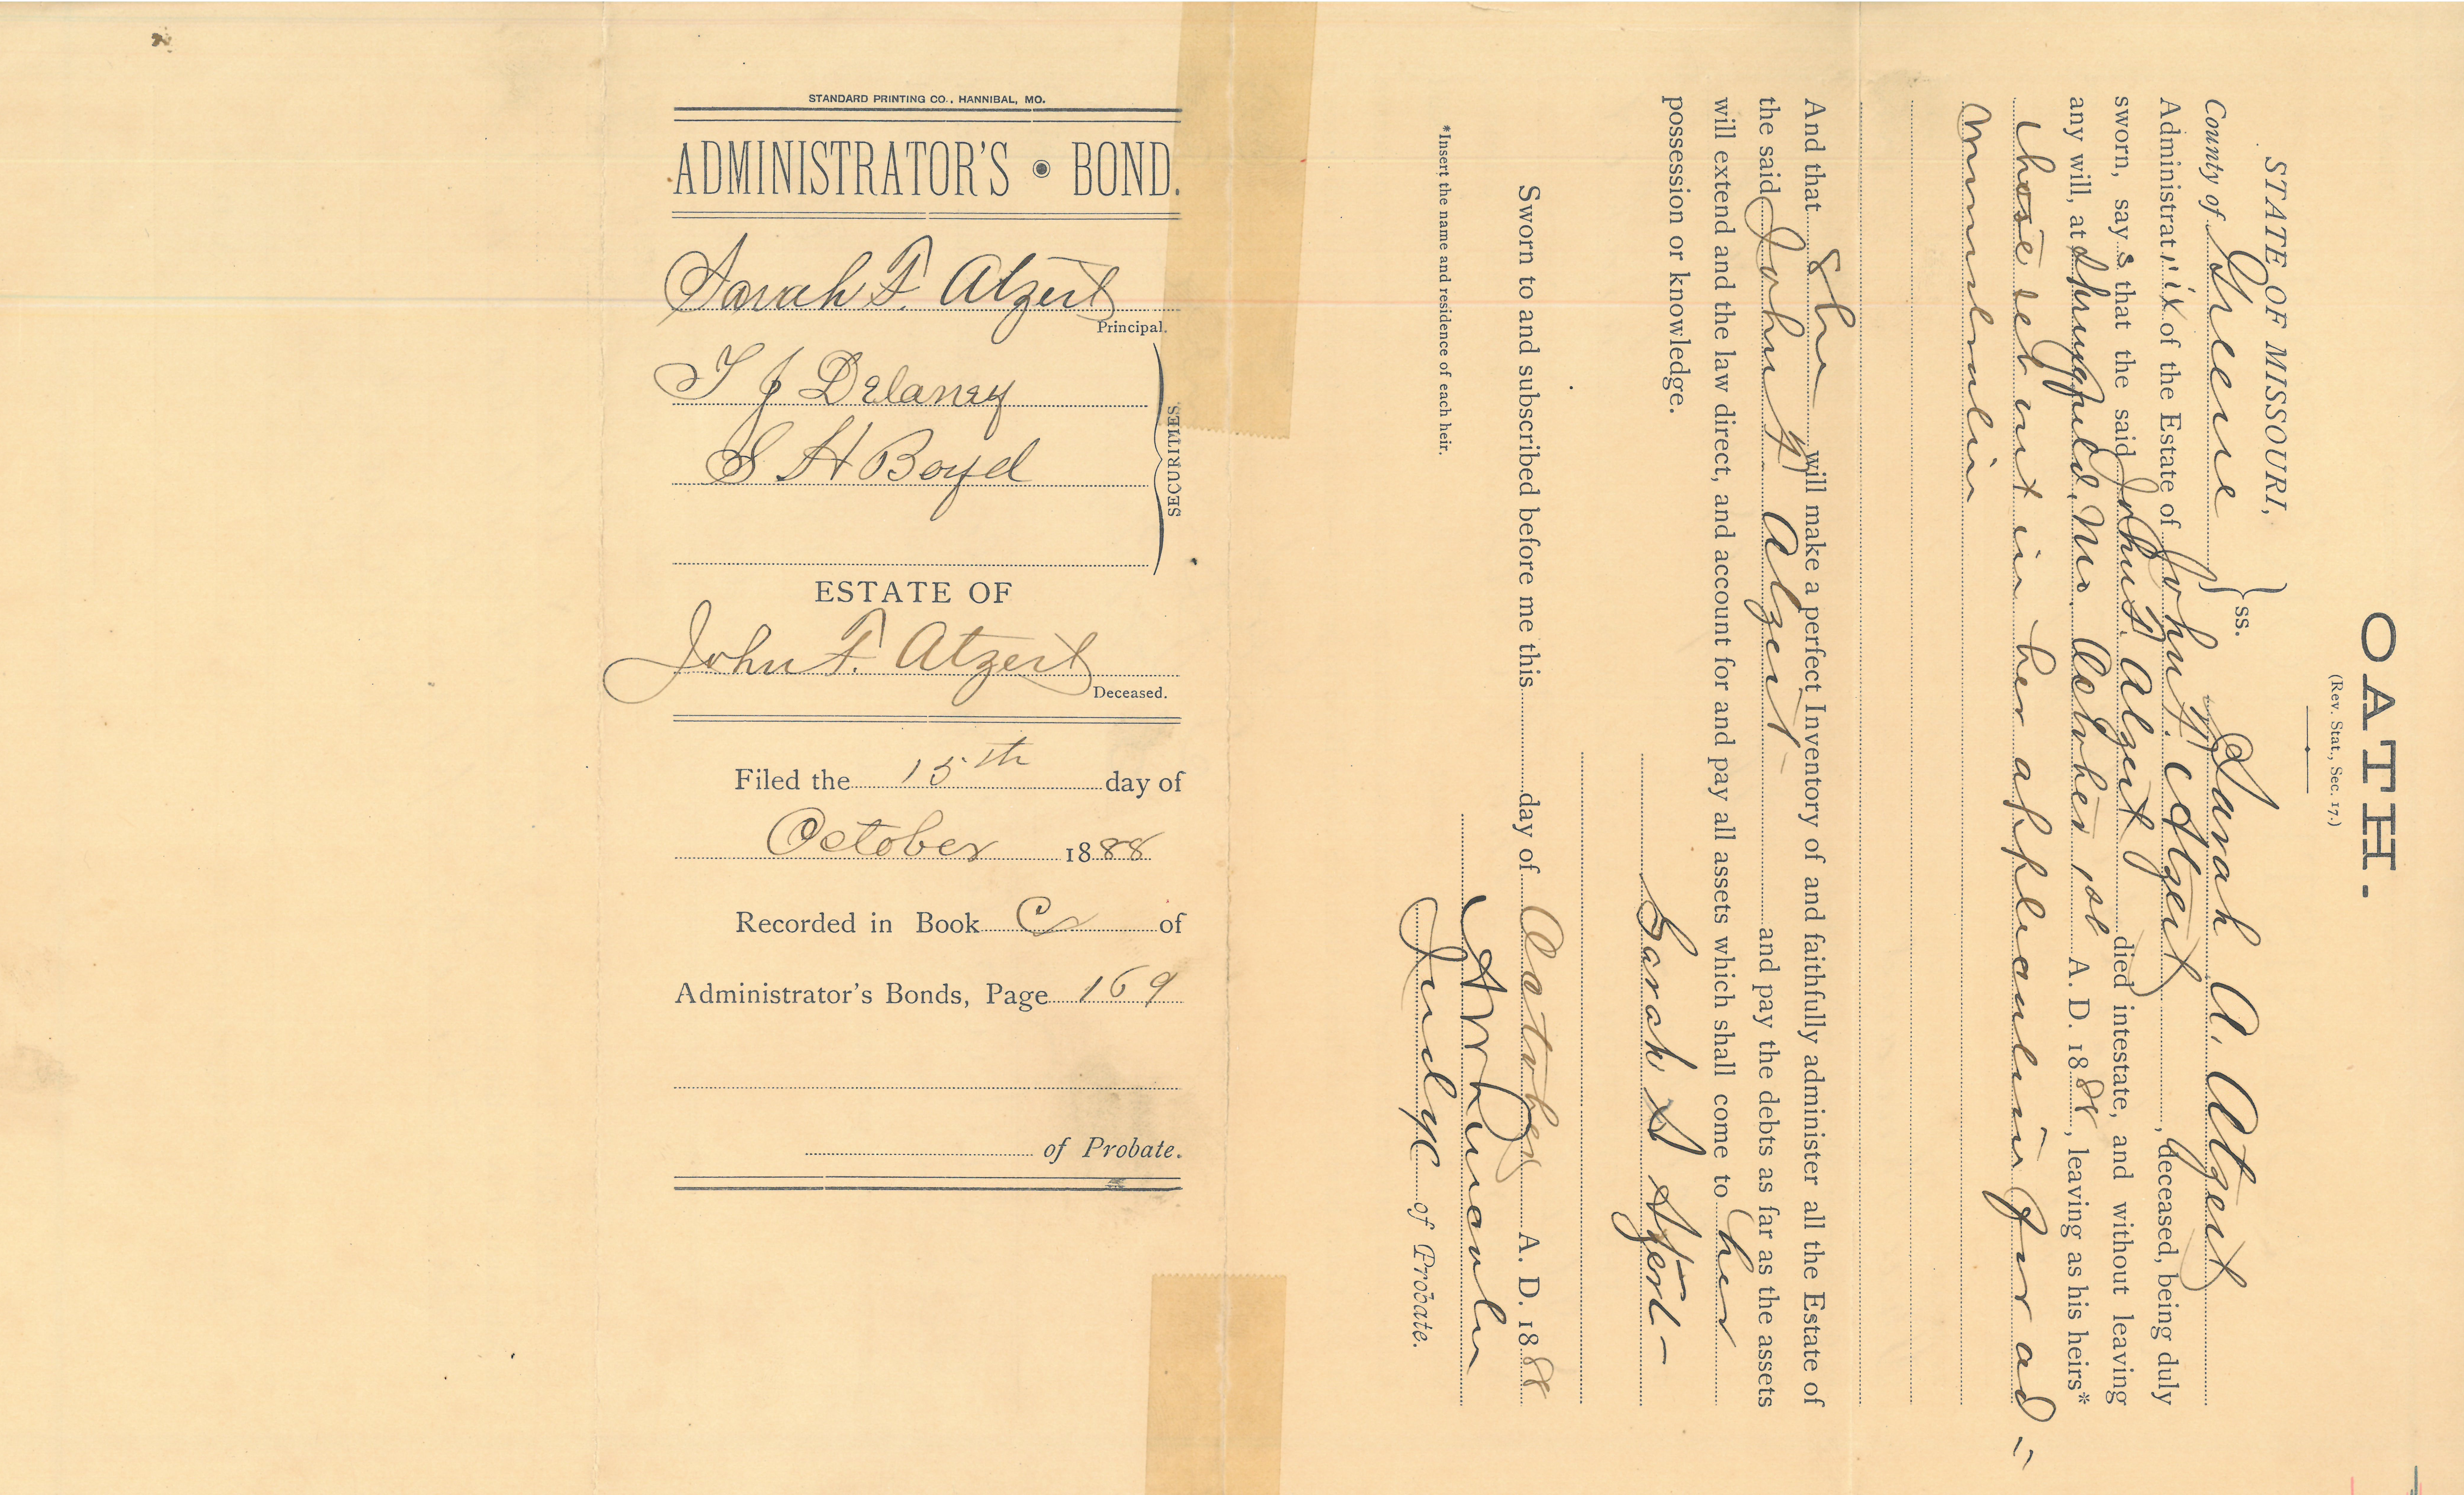 STANDARD PRINTING CO., HANNIBAL, MO.
ADMINISTRATOR'S • BOND.
Sarah F. Atzert
Principal.
T J Delaney
S H Boyd
SECURITIES.
ESTATE OF
John F. Atzert
Deceased.
Filed the 15th day of
October 1888
Recorded in Book C of
Administrator's Bonds, Page 169
of Probate.
OATH.
(Rev. Stat., Sec. 17.)
STATE OF MISSOURI,
ss.
County of Greene Sarah A. Atzert
Administratrix of the Estate of John F. Atzert, deceased, being duly
sworn, says that the said John F. Atzert died intestate, and without leaving
any will, at Springfield, Mo. October 1st A. D. 1888, leaving as his heirs*
those set out in her application for ad=
ministration
And that She will make a perfect Inventory of and faithfully administer all the Estate of
the said John F Atzert and pay the debts as far as the assets
will extend and the law direct, and account for and pay all assets which shall come to her
possession or knowledge.
Sarah A Atzert
Sworn to and subscribed before me this day of October A. D. 1888
Judge of Probate.
*Insert the name and residence of each heir.